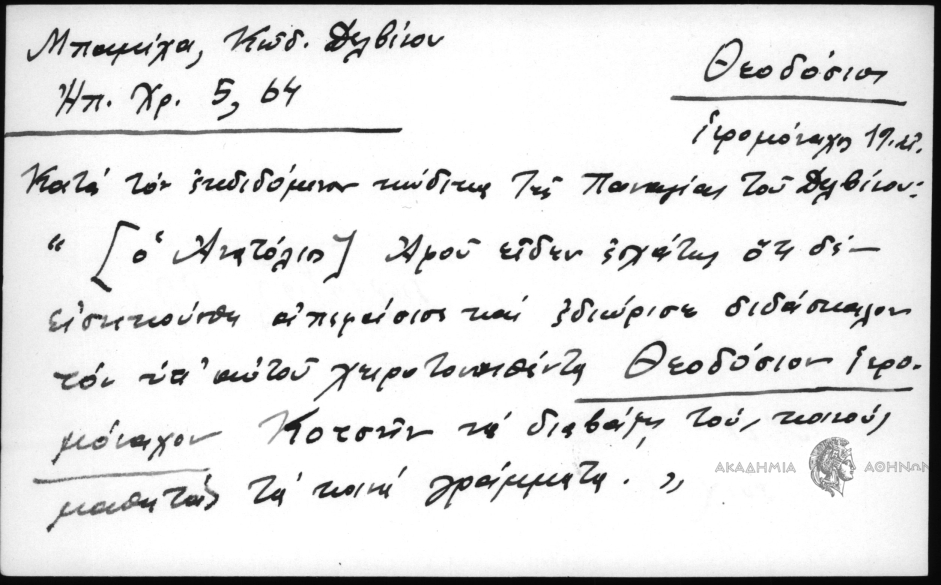 Μπαμίχα, Κώδ. Δελβίνου
Ἠπ. Χρ. 5, 64
Θεοδόσιος
ἱερομόναχος 19.
Κατά τόν ἐκδιδόμενον κώδικα τῆς Παναγίας τοῦ Δελβίνου:
“ [ὁ Ἀνατόλιος] Ἀφοῦ εἶδεν ἐσχάτως ὅτι δέν
εἰσηκούσθη ἀπεφάσισε καί ἐδιώρισε διδάσκαλον
τόν ὑπ' αὐτοῦ χειροτονηθέντα Θεοδόσιον ἱερο-
μόναχον νά διαβάζῃ τούς κοινούς
μαθητάς τά κοινά γράμματα. „
ΑΚΑΔΗΜΙΑ ΑΘΗΝΩΝ